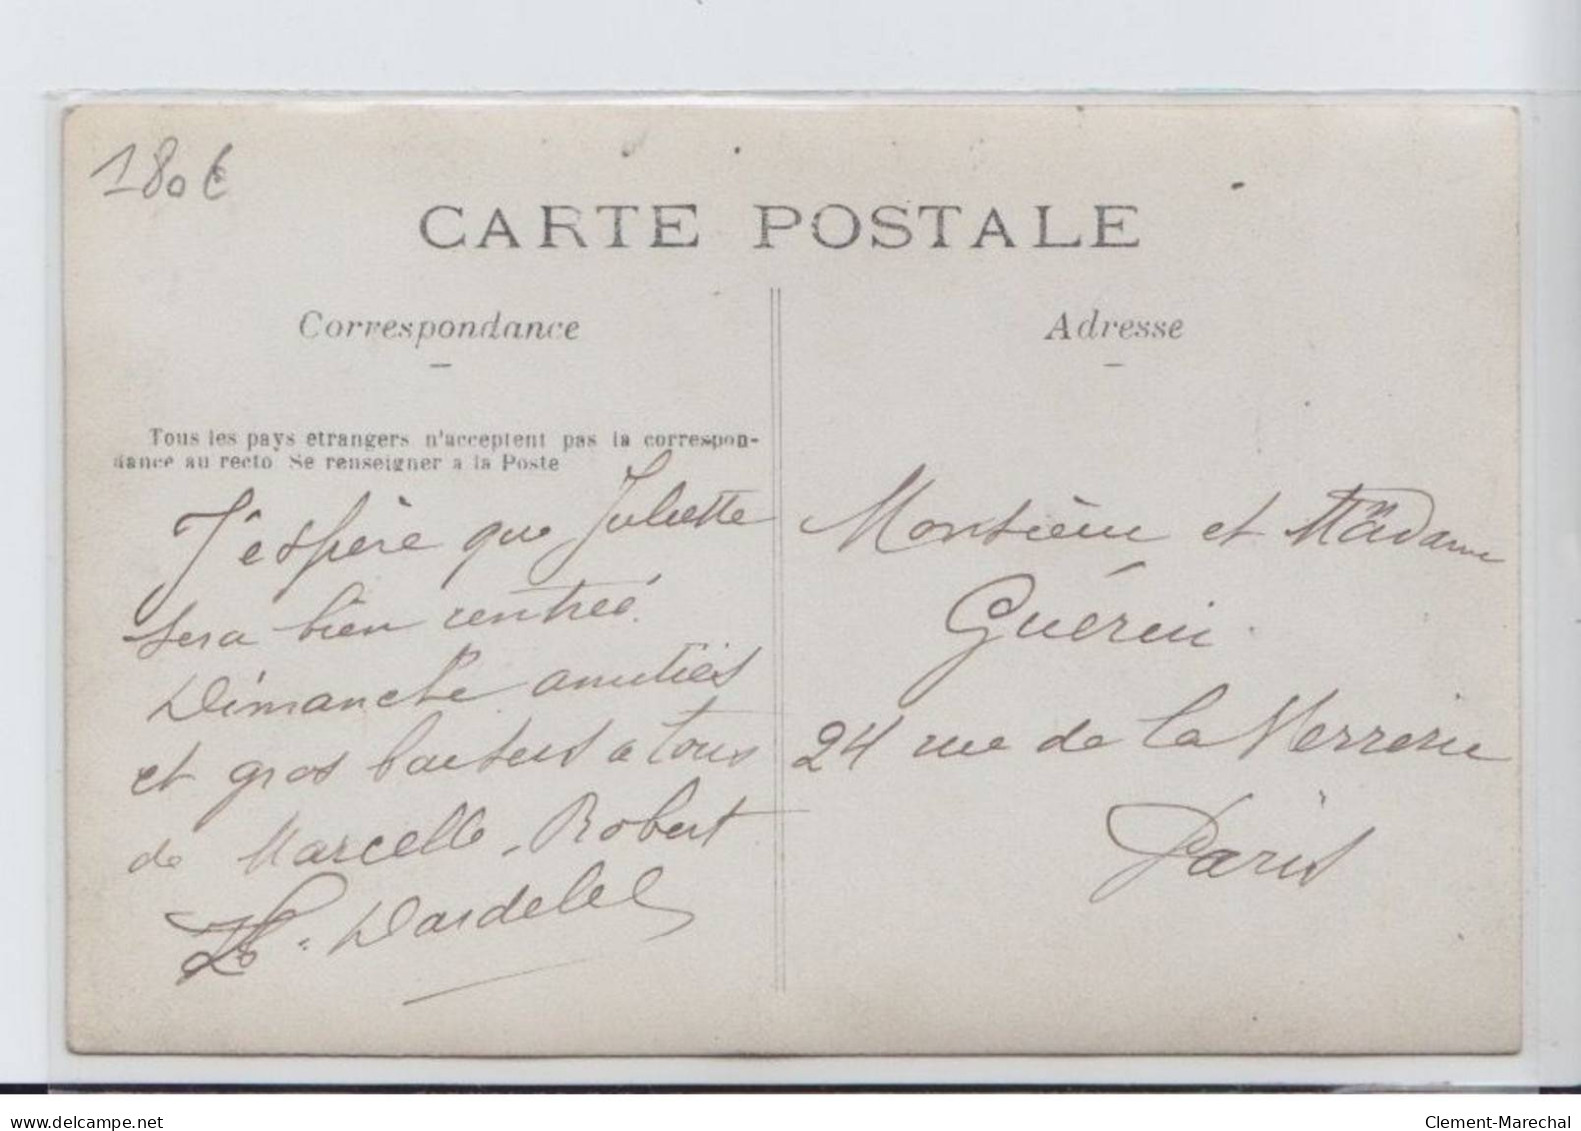 180€
CARTE POSTALE
Correspondance
Adresse
Tous les pays etrangers n'acceptent pas la correspon-
dance au recto Se renseigner a la Poste
J'espère que Juliette
sera bien rentrée
Dimanche amitiés
et gros baisers a tous
de Marcelle, Robert
Dardelel
Monsieur et Madame
Guérin
24 rue de la Verrerie
Paris
www.delcampe.net
Clement-Marechal